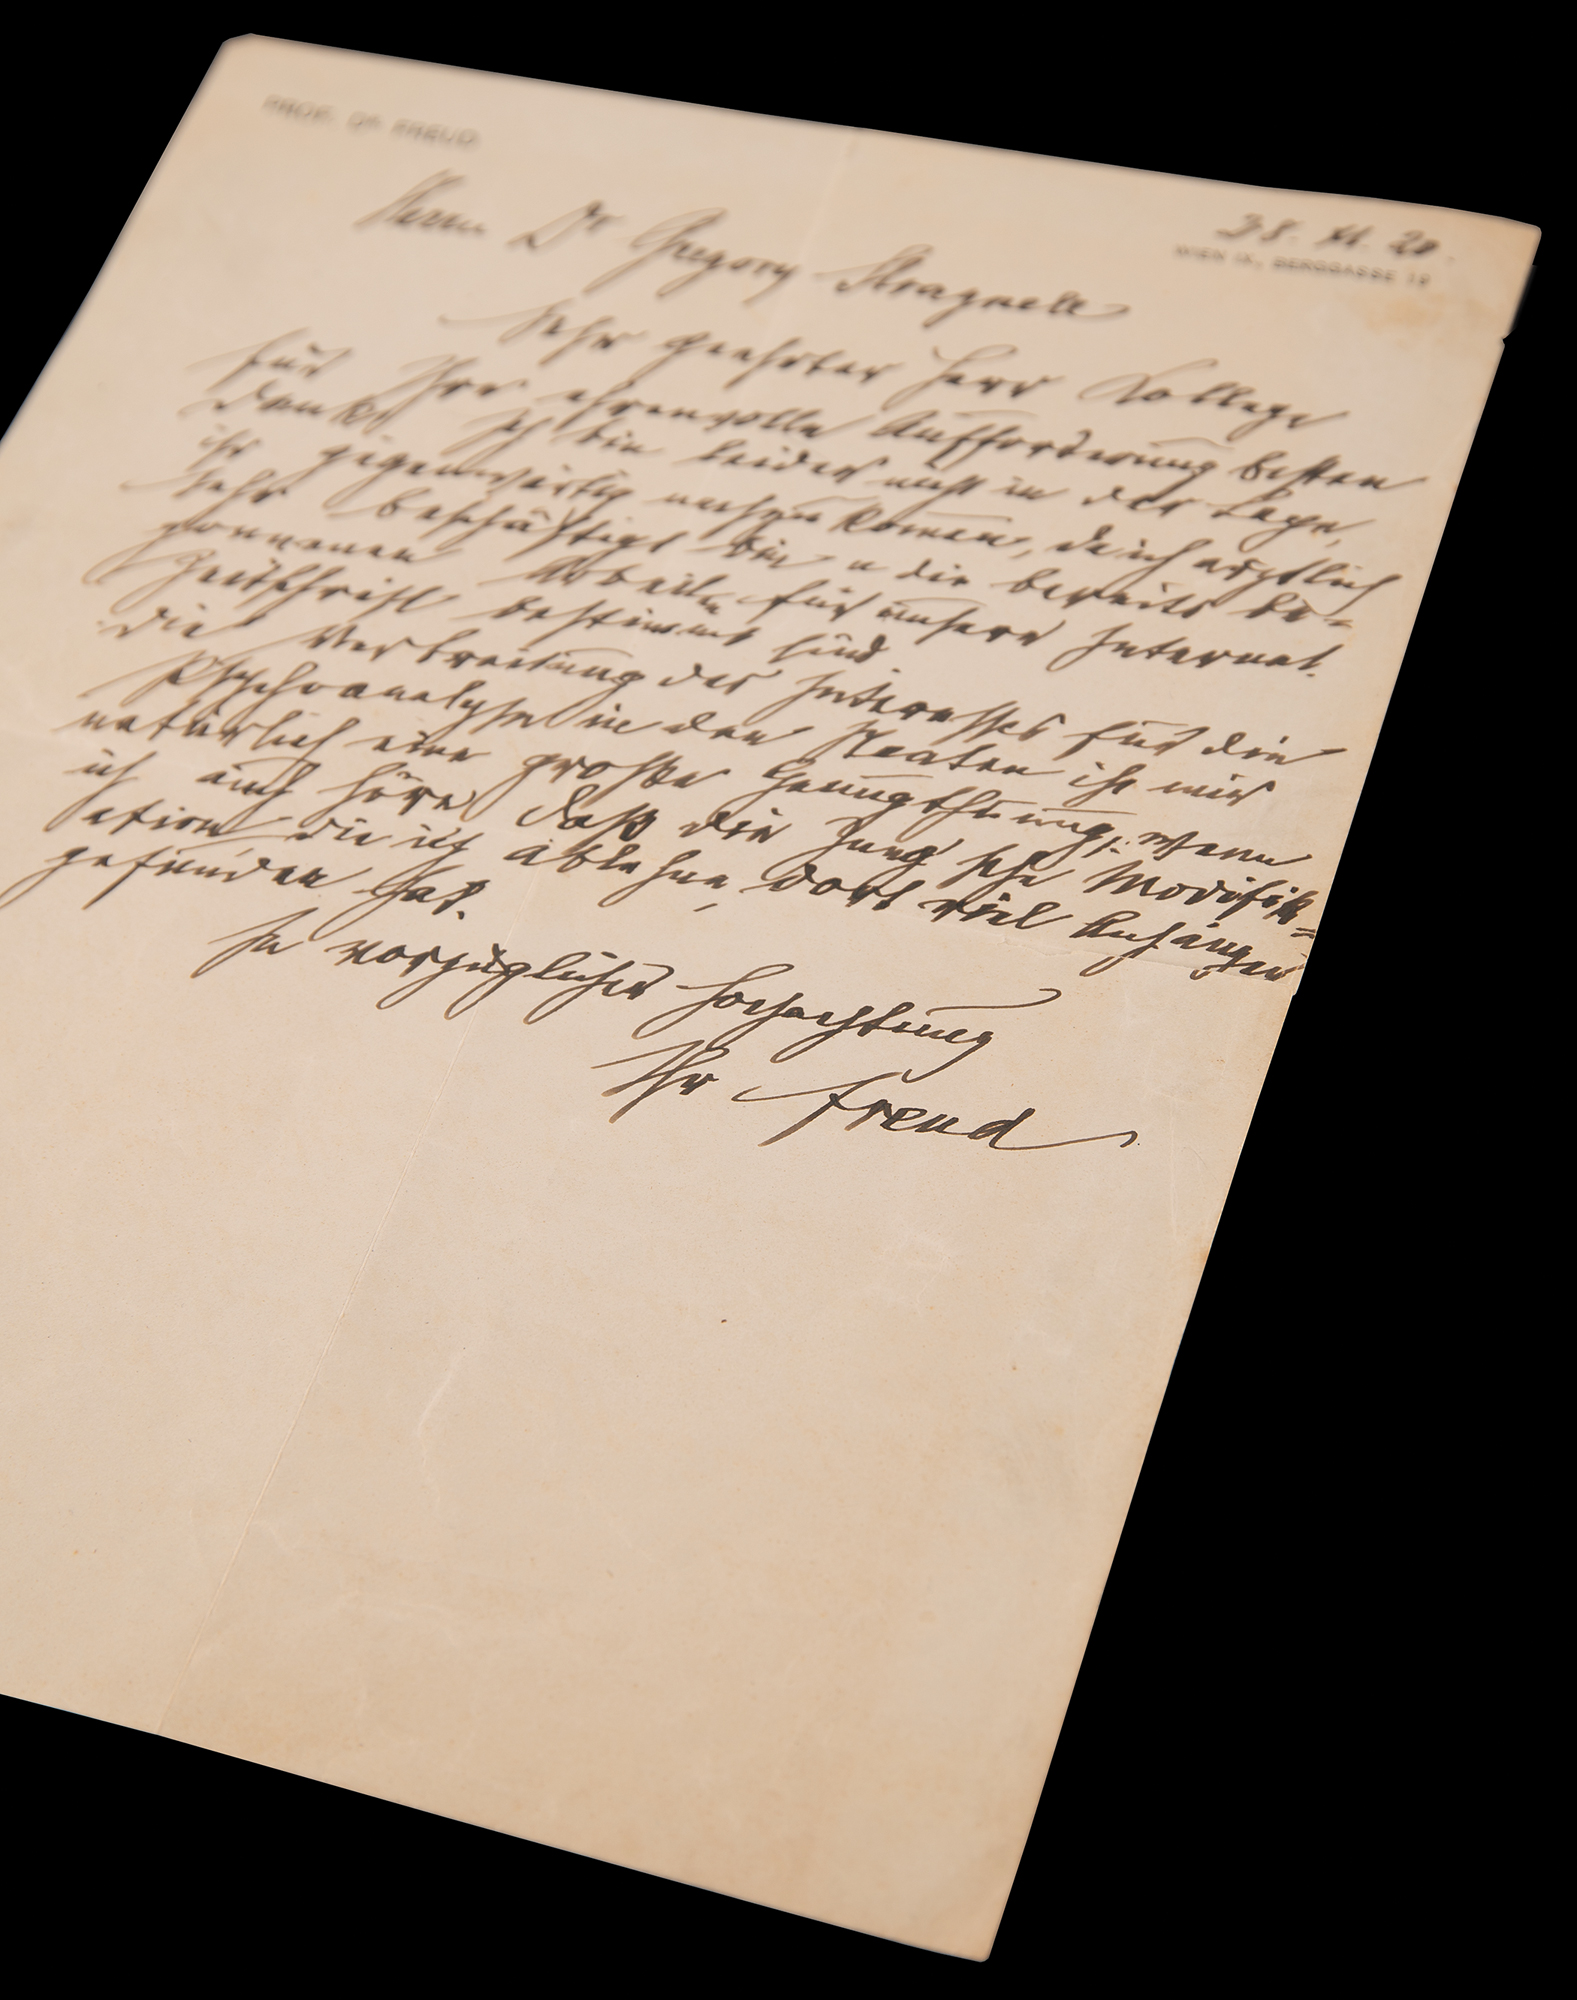 PROF. Dr. FREUD
28. XI. 20.
WIEN IX., BERGGASSE 19
Herrn Dr Gregory Stragnell
Sehr geehrter Herr Kollege
Für Ihre ehrenvolle Aufforderung besten
Dank. Ich bin leider nicht in der Lage,
ihr gegenwärtig nachzukommen, da ich ärztlich
sehr beschäftigt bin u die bereits be-
gonnenen Arbeiten für unsere Internat.
Zeitschrift bestimmt sind.
Die Verbreitung des Interesses für die
Psychoanalyse in den Staaten ist mir
natürlich eine große Genugthuung, wenn
ich auch höre daß die Jungsche Modifik-
ation die ich ablehne, dort viel Anhänger
gefunden hat.
In vorzüglicher Hochachtung
Ihr Freud